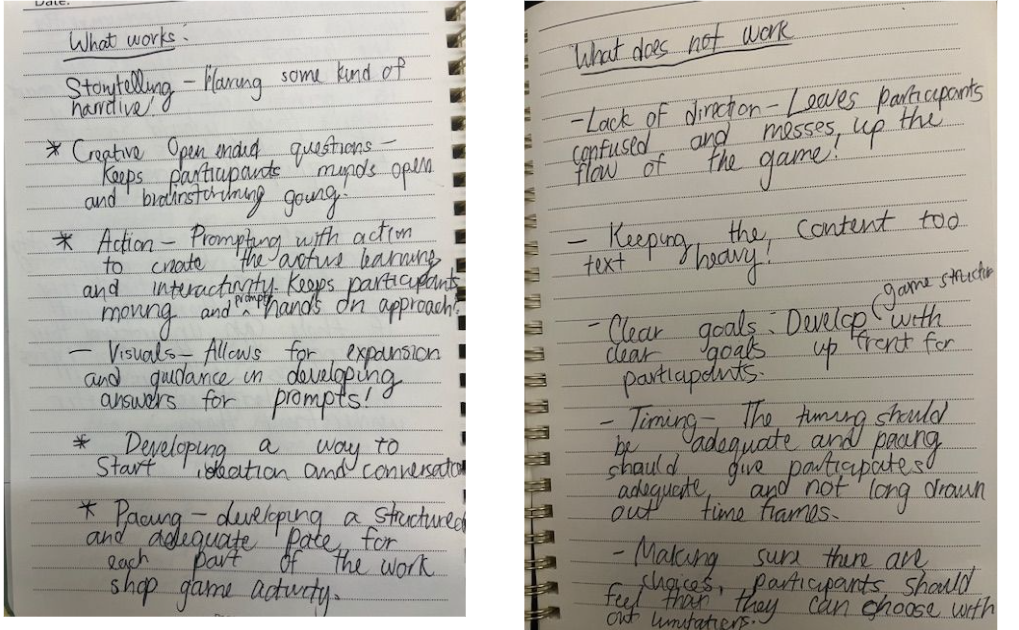 Date:
What works:
Storytelling - Having some kind of
narritive!
* Creative Open ended questions -
keeps participants minds open
and brainstorming going!
* Action - Prompting with action
to create the active learning
and interactivity. Keeps participants
moving and prompts hands on approach!
- Visuals - Allows for expansion
and guidance in developing
answers for prompts!
* Developing a way to
Start ideation and conversation
* Pacing - developing a structured
and adequate pace for
each part of the work
shop game activity.
What does not work
- Lack of direction - Leaves participants
confused and messes up the
flow of the game!
- Keeping the content too
text heavy!
game structure
- Clear goals: Develop with
clear goals up front for
participants.
- Timing - The timing should
be adequate and pacing
should give participates
adequate, and not long drawn
out time frames.
- Making sure there are
choices, participants should
feel that they can choose with
out limitations.